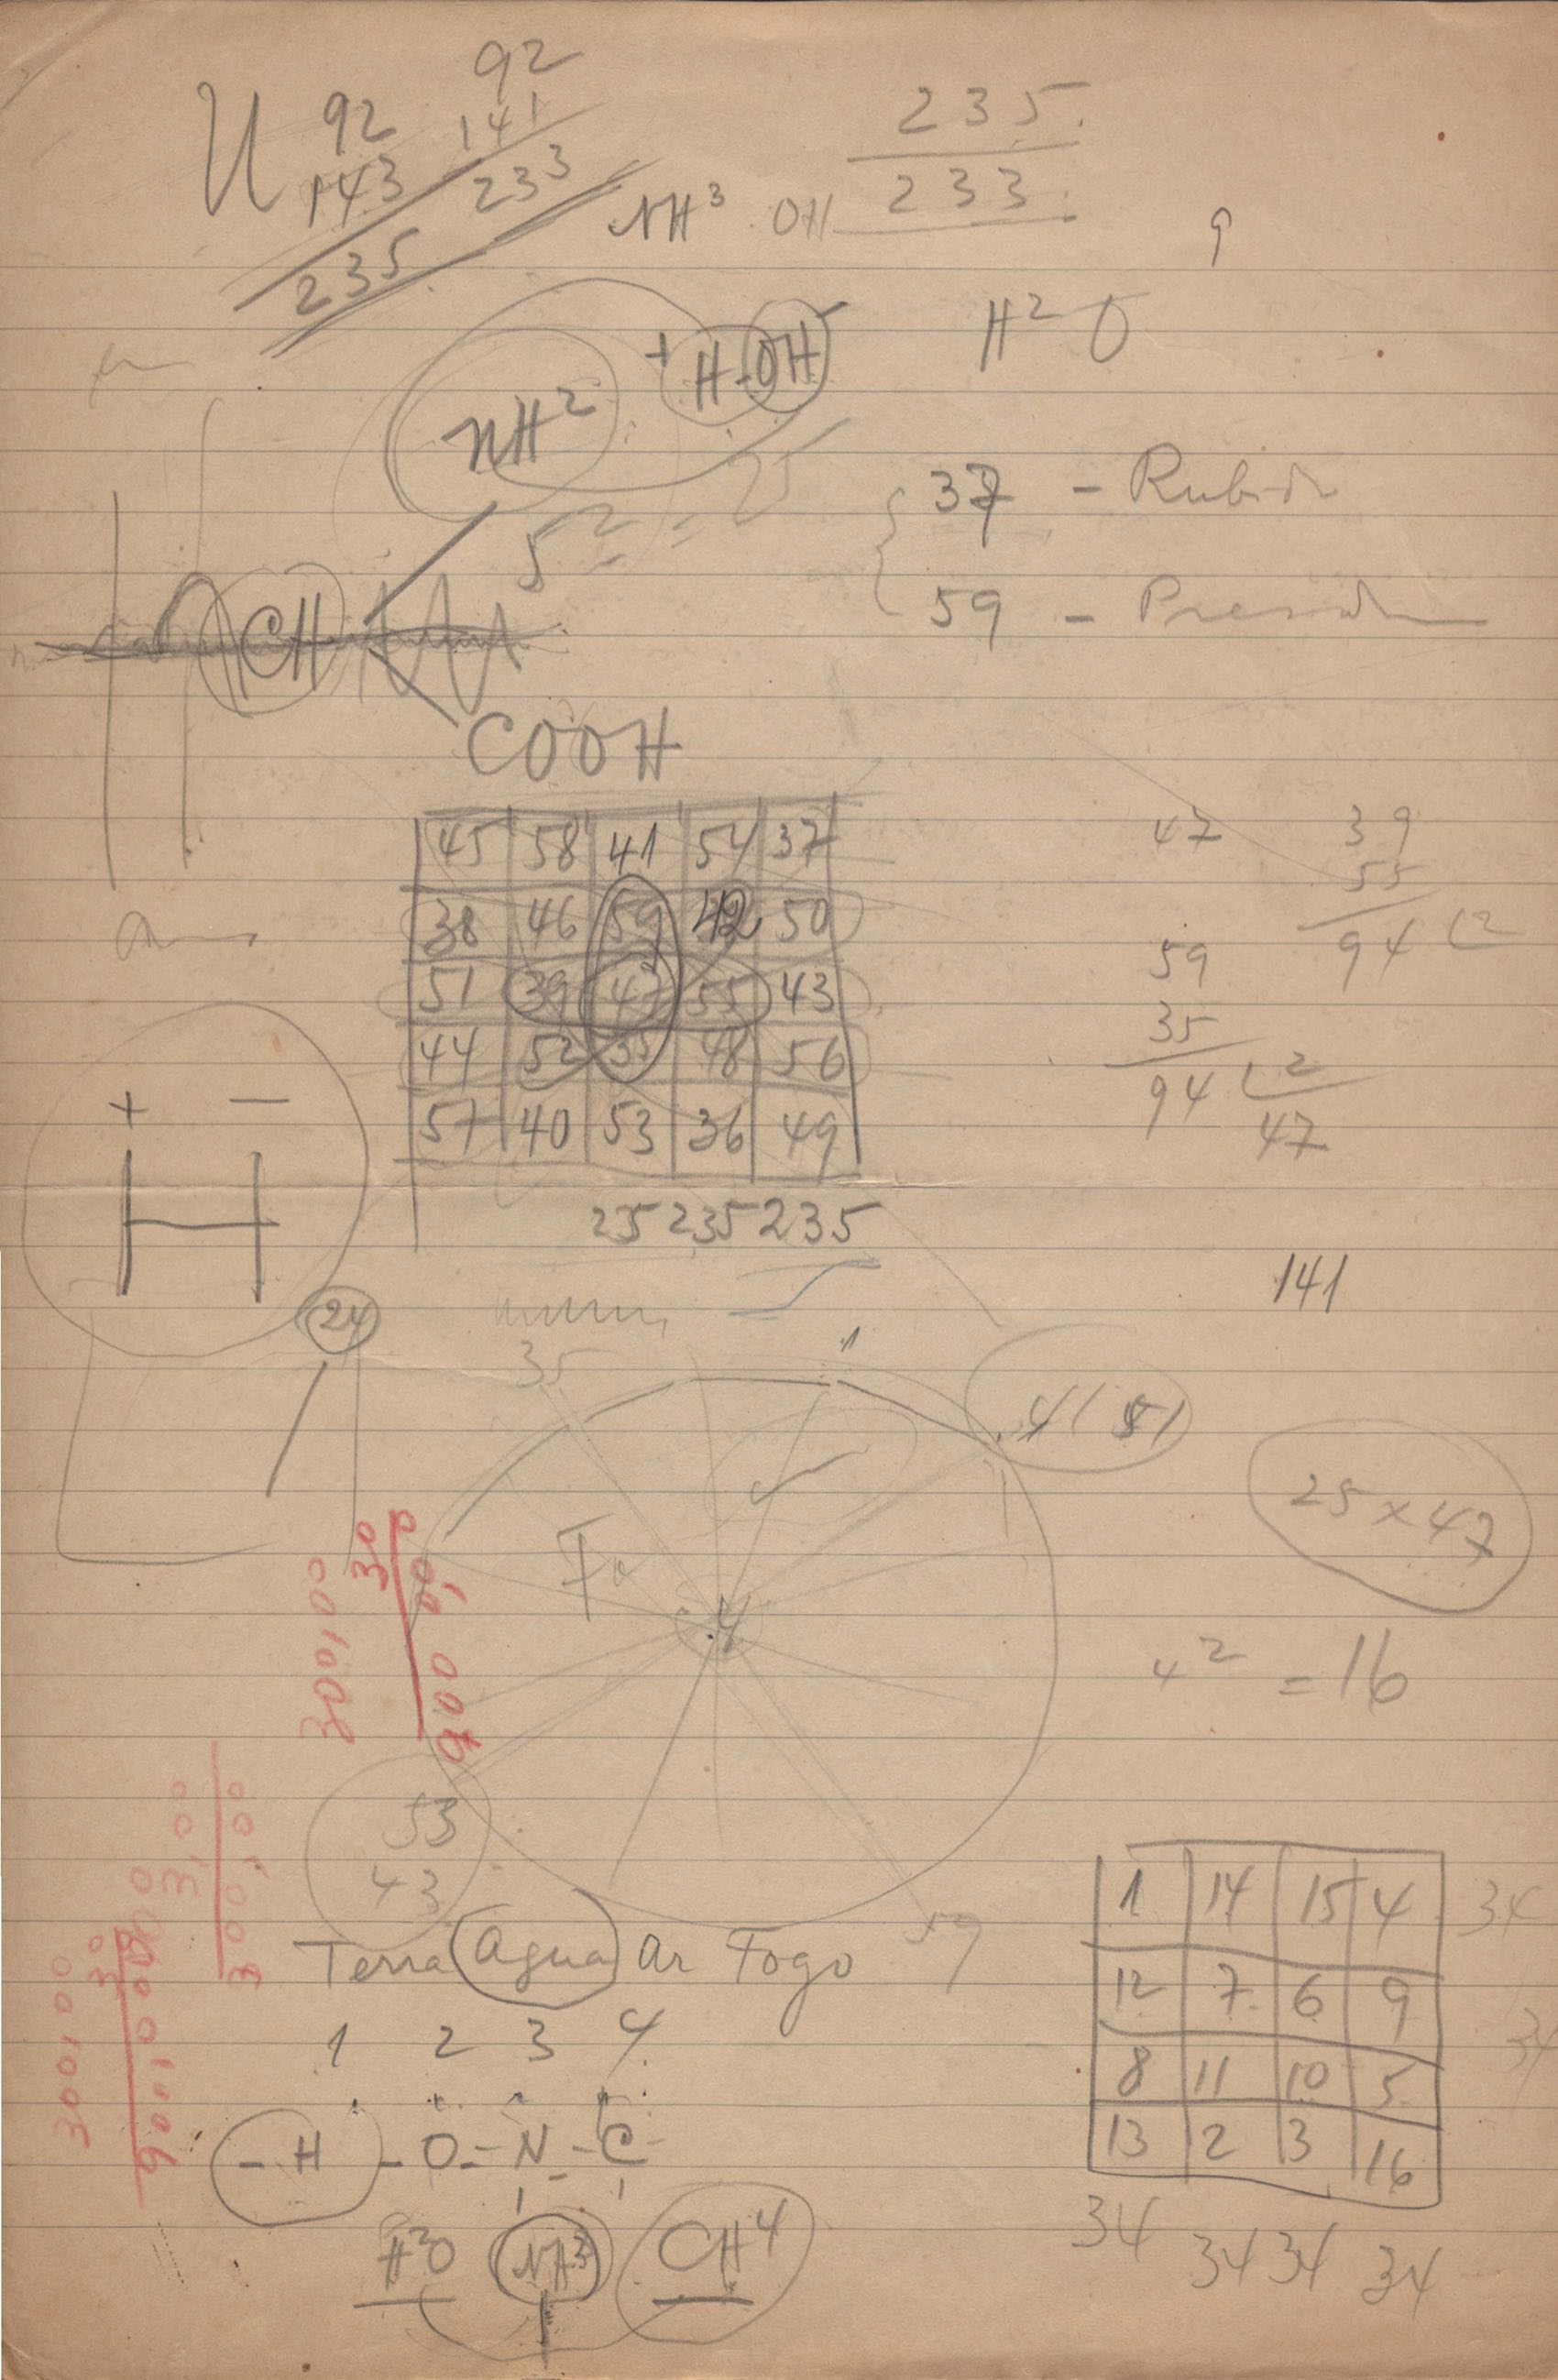 U 92 92 235
143 141 233
235 233
NH³ OH
9
NH² + H-OH⁻ H²O
5² = 25
37 - Rubidi
59 -
CH
COOH
45 58 41 54 37
38 46 59 42 50
51 39 47 55 43
44 52 35 48 56
57 40 53 36 49
25 235 235
47 39
55
94 2
59
35
94 2
47
+ −
H
24
141
35 1
41 51
25 x 47
Fo
4
4² = 16
53
43
59
Terra Agua Ar Fogo
1 2 3 4
- H - O - N - C -
H²O NH³ CH⁴
1 14 15 4 34
12 7 6 9 34
8 11 10 5
13 2 3 16
34 34 34 34
900
30
300,00
3,00
300,00
30